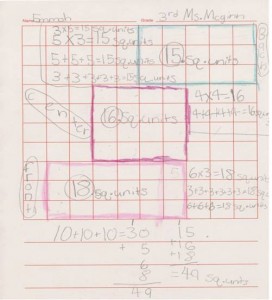 3rd Ms. Mogren
3x5=15 sq.units
5x3=15 sq.units
5+5+5=15 sq.units
3+3+3+3+3=15 sq.units
15 sq.units
center
16 sq.units
4x4=16
4+4+4+4=16 sq.units
front
18 sq.units
6x3=18 sq.units
3+3+3+3+3+3=18 sq.units
6+6+6=18 sq.units
10+10+10=30
+ 5
6
8
49
15
+16
+18
=49 sq.units